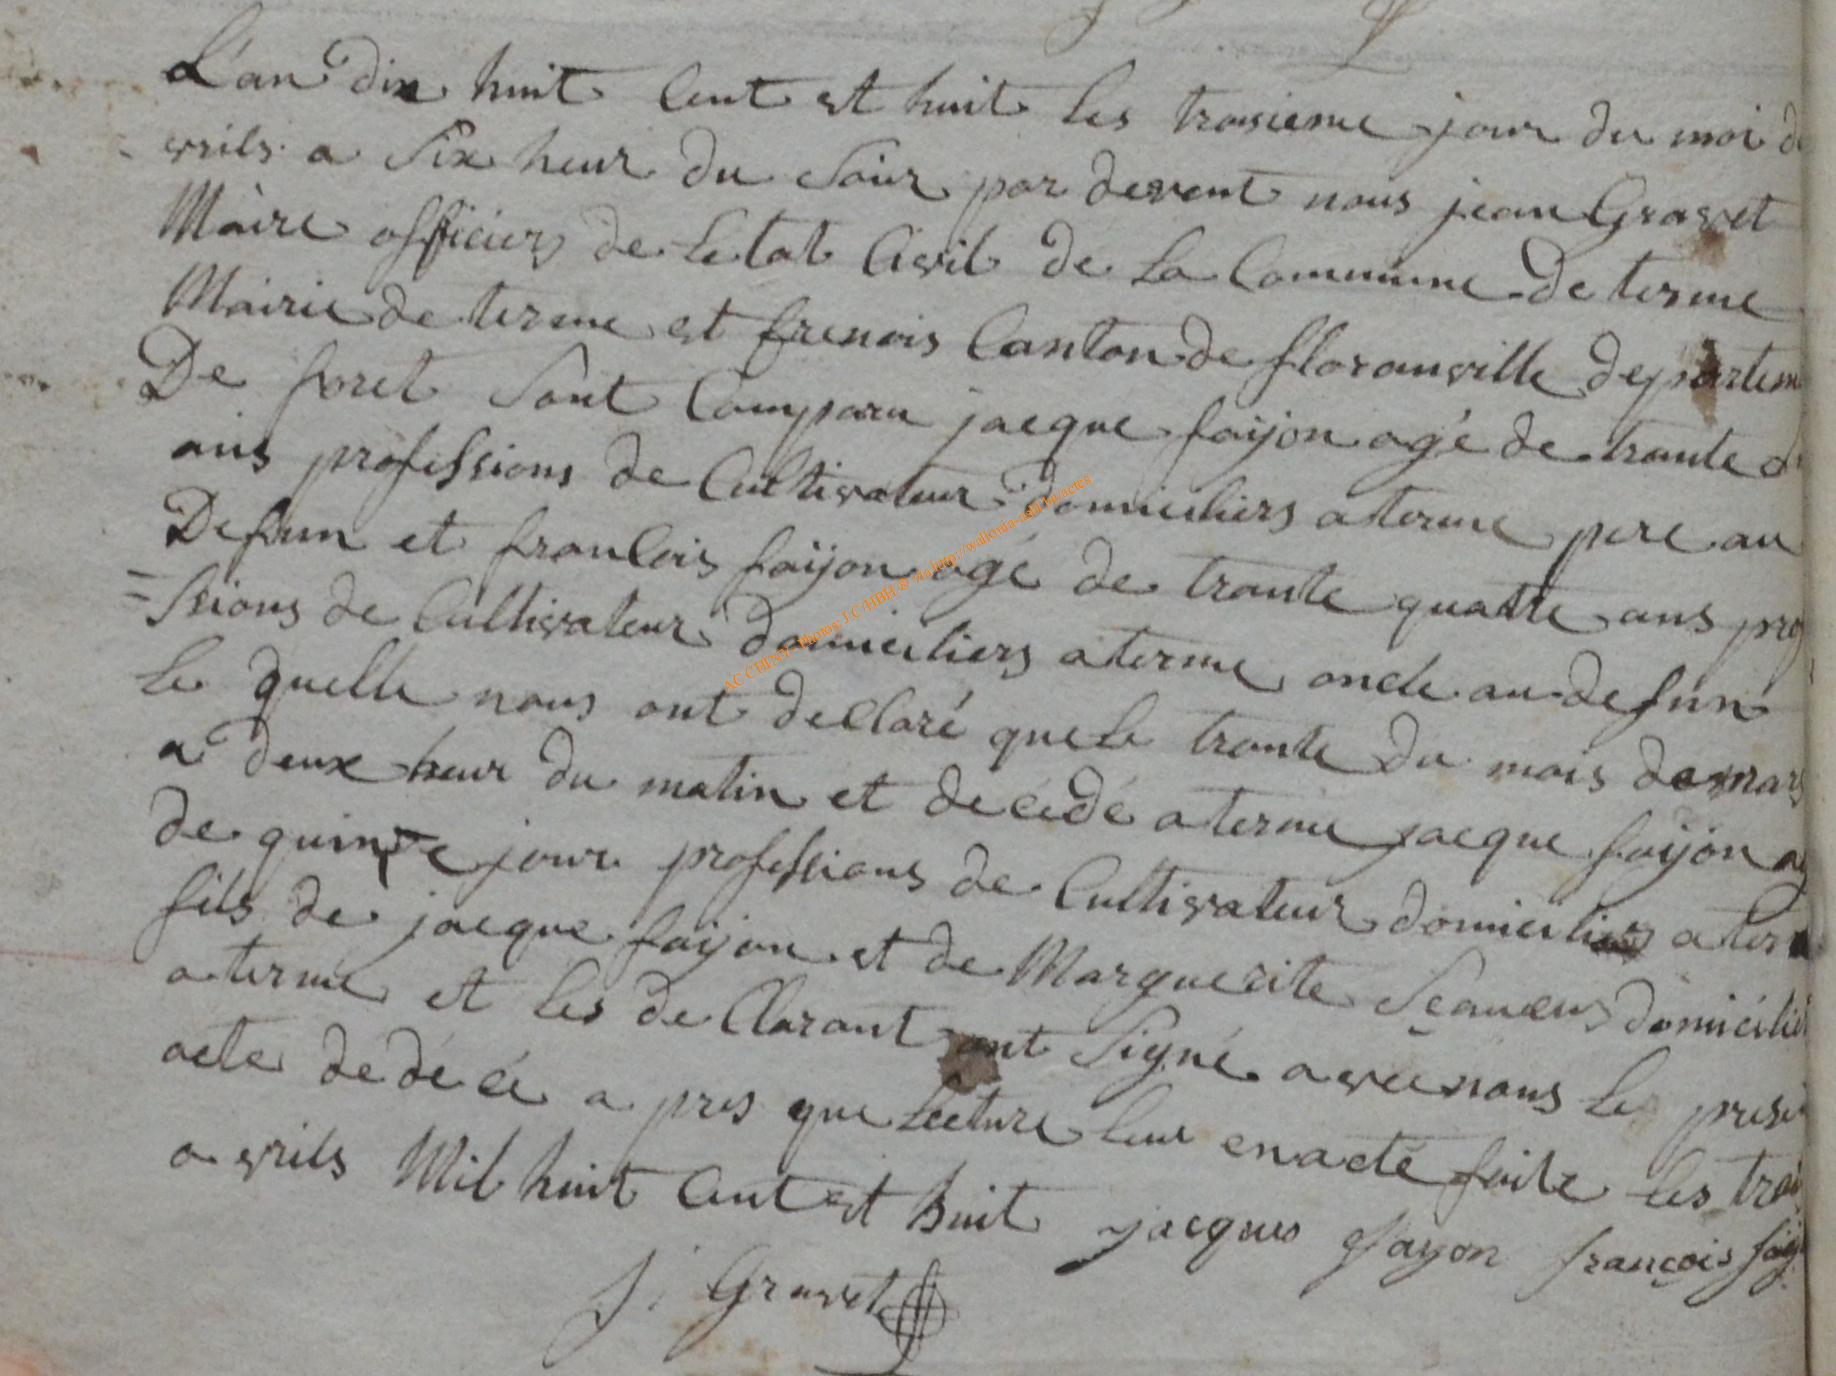 L'an dix huit Cent et huit les troisieme jour du moi d
vrils a Six heur du Soir par devent nous jean Gravet
Maire officiers de Letat Civil de La Commune De terme
Mairie de terme et frenois Canton de floranville departem
De foret Sont Comparu jacque faijon agé de trante
ans professions de Cultivateur domiciliers a terme pere au
Defun et franCois faijon agé de trante quattre ans prof
=ssions de Cultivateur domiciliers a terme oncle au defun
Le quelle nous ont declaré que le trante du mois de mars
a deux heur du matin et décédé a terme jacque faijon ag
de quinze jour professions de Cultivateur domiciliers a term
fils de jacque faijon et de Marguerite domicilié
a terme et les de Clarant ont Signé avec nous le presen
acte de décé a pres que Lecture leur en a cté faite les troi
a vrils Mil huit Cent et huit jacques fayon françois faij
J. Gravet
AC CHINY - Photos J.C HBH & via http://wallonia-asbl.be/actes